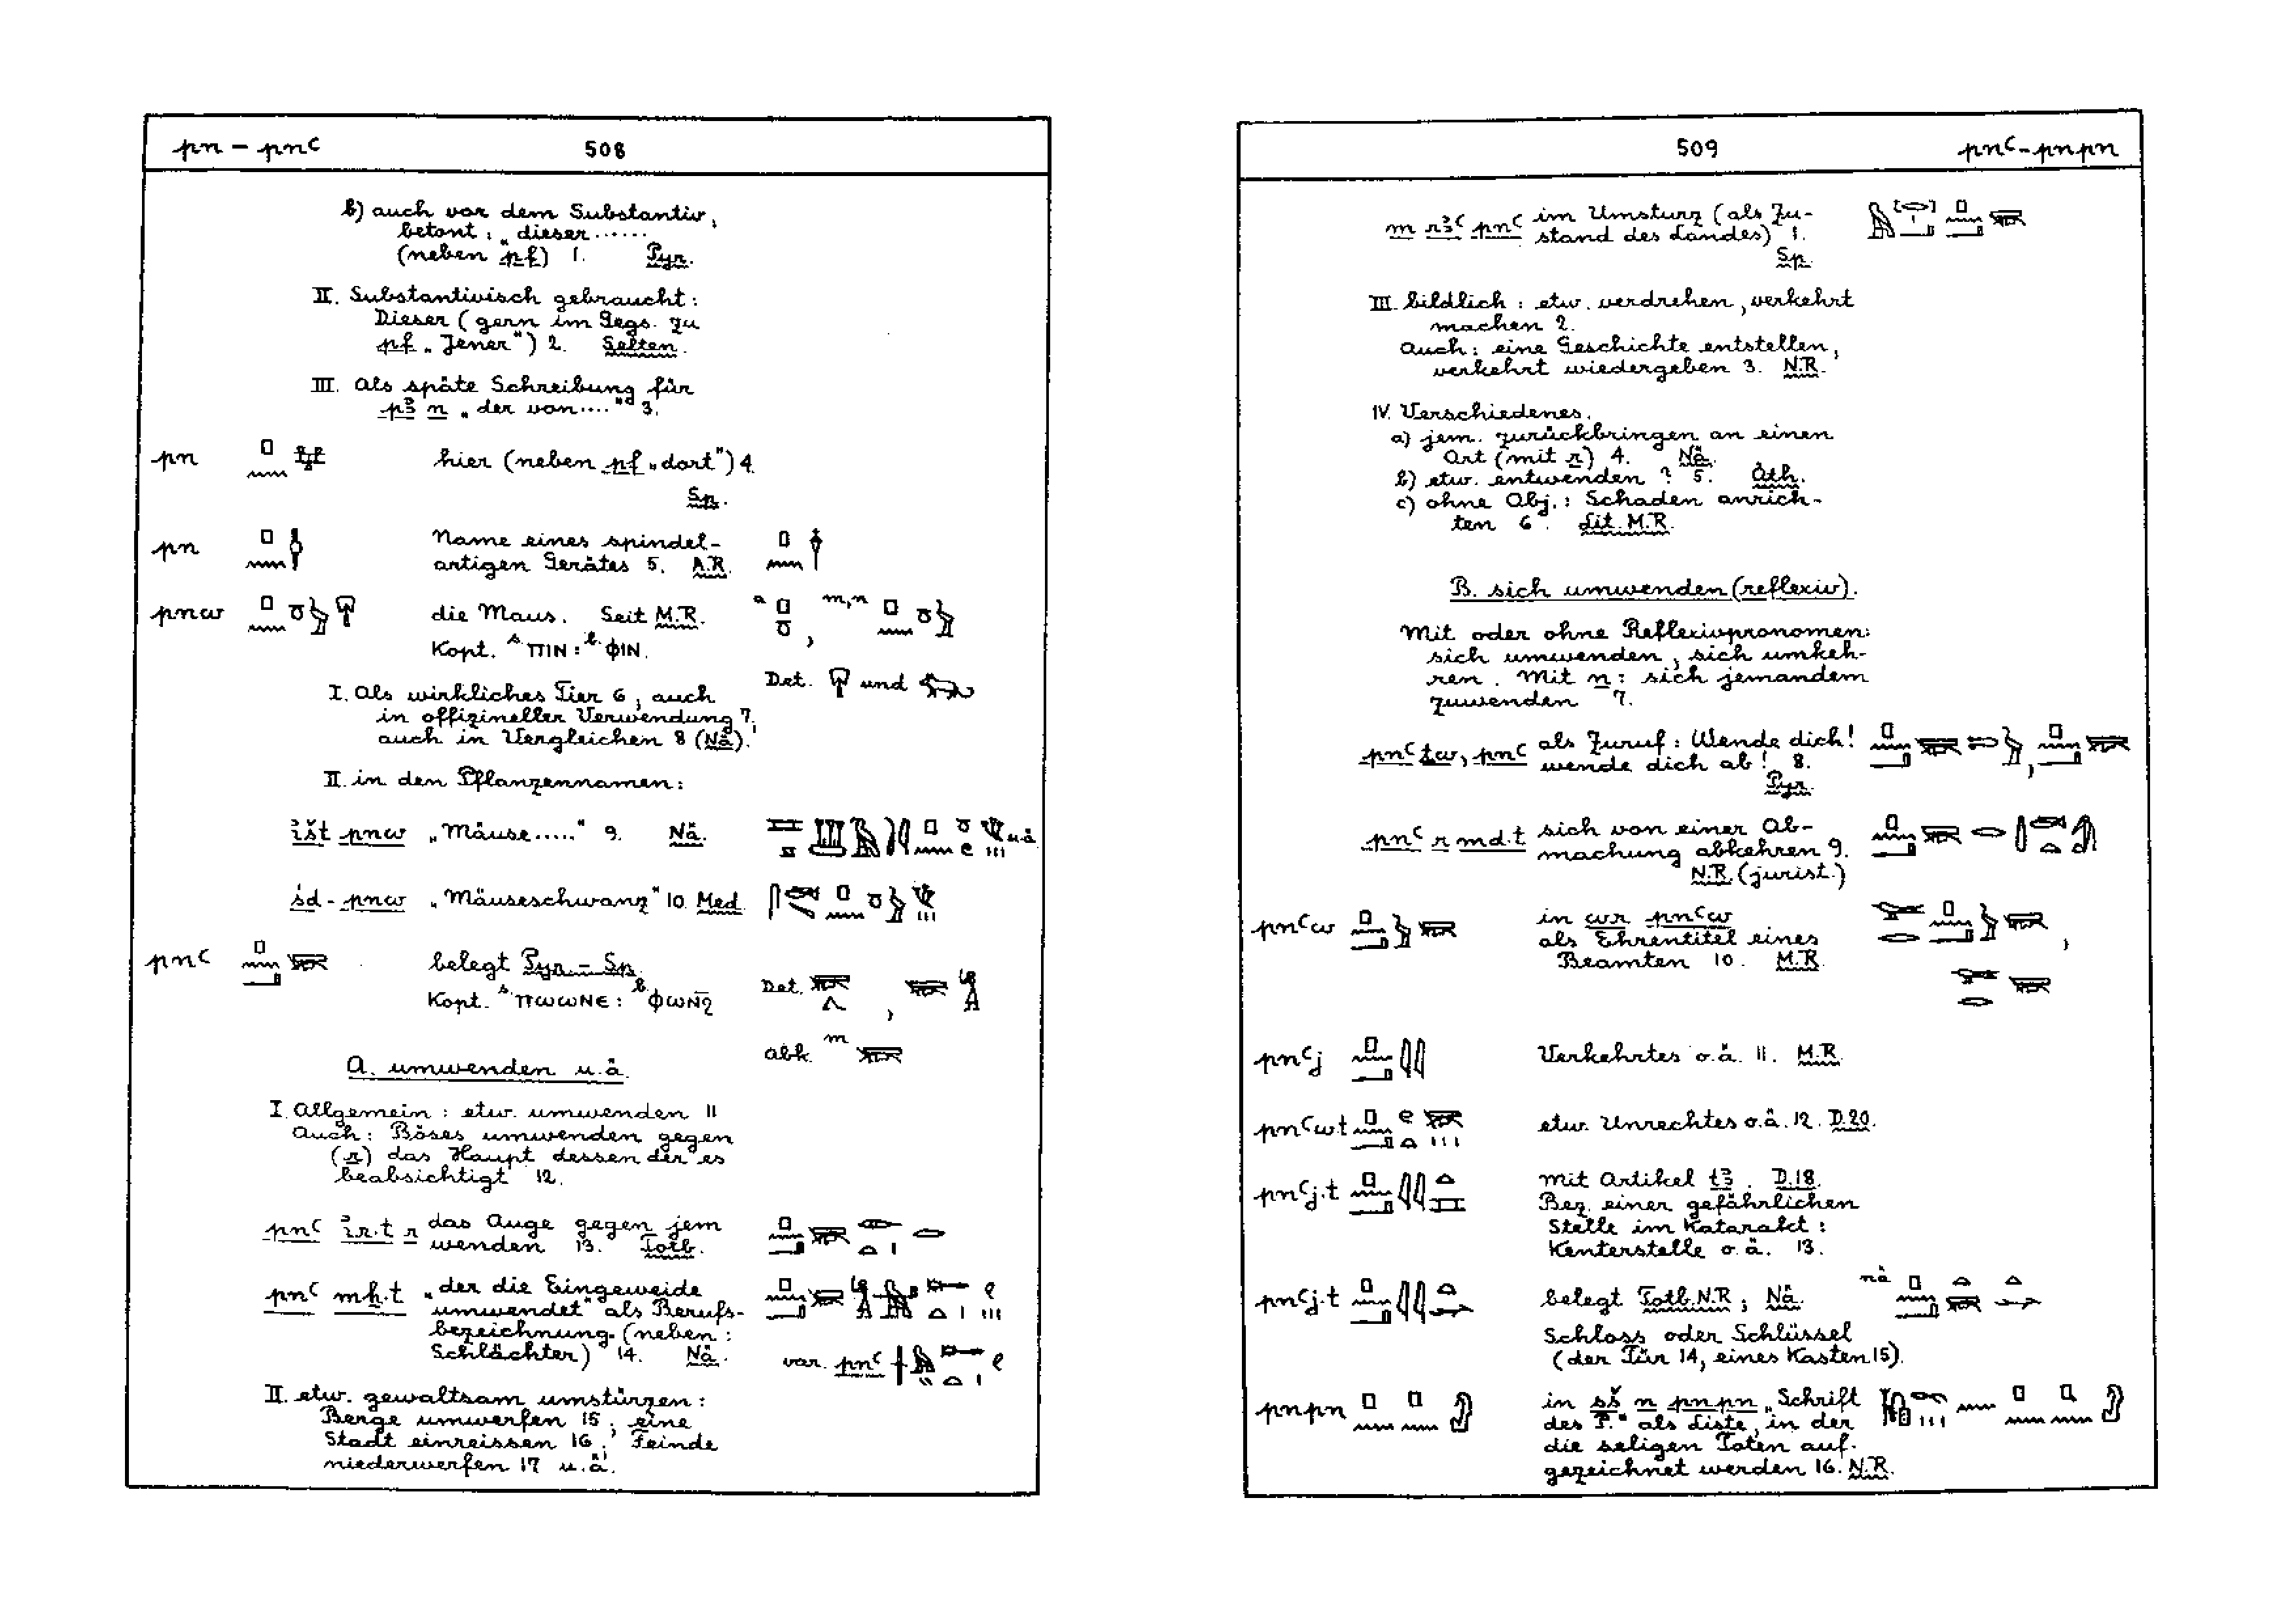 pn – pnꜥ 508
b) auch vor dem Substantiv,
betont: „dieser ......
(neben pf) 1. Pyr.
II. Substantivisch gebraucht:
Dieser (gern im Gegs. zu
pf „Jener") 2. Selten.
III. Als späte Schreibung für
pꜣ n „der von ...." 3.
pn hier (neben pf „dort") 4.
Sp.
pn Name eines spindel-
artigen Gerätes 5. A.R.
pnw die Maus. Seit M.R.
Kopt. s. ⲠⲒⲚ : b. ⲪⲒⲚ.
Det. und
I. Als wirkliches Tier 6, auch
in offizineller Verwendung 7,
auch in Vergleichen 8 (Nä).
II. in den Pflanzennamen:
ꞽšt pnw „Mäuse....." 9. Nä. u.ä.
śd-pnw „Mäuseschwanz" 10. Med.
pnꜥ belegt Pyr – Sp.
Kopt. s. ⲠⲰⲰⲚⲈ : b. ⲪⲰⲚϨ
Det. ,
abk. m
A. umwenden u.ä.
I. Allgemein: etw. umwenden 11
Auch: Böses umwenden gegen
(r) das Haupt dessen der es
beabsichtigt 12.
pnꜥ ꞽr.t r das Auge gegen jem
wenden 13. Totb.
pnꜥ mẖ.t „der die Eingeweide
umwendet" als Berufs-
bezeichnung. (neben:
Schlächter) 14. Nä. var. pnꜥ
II. etw. gewaltsam umstürzen:
Berge umwerfen 15; eine
Stadt einreissen 16; Feinde
niederwerfen 17 u.ä.
509 pnꜥ – pnpn
m rꜣꜥ pnꜥ im Umsturz (als Zu-
stand des Landes) 1.
Sp.
III. bildlich: etw. verdrehen, verkehrt
machen 2.
Auch: eine Geschichte entstellen,
verkehrt wiedergeben 3. N.R.
IV. Verschiedenes.
a) jem. zurückbringen an einen
Ort (mit r) 4. Nä.
b) etw. entwenden ? 5. Äth.
c) ohne Obj.: Schaden anrich-
ten 6. Lit. M.R.
B. sich umwenden (reflexiv).
Mit oder ohne Reflexivpronomen:
sich umwenden, sich umkeh-
ren. Mit n: sich jemandem
zuwenden 7.
pnꜥ ṯw, pnꜥ als Zuruf: Wende dich!
wende dich ab! 8.
Pyr.
pnꜥ r md.t sich von einer Ab-
machung abkehren 9.
N.R. (jurist.)
pnꜥw in wr pnꜥw
als Ehrentitel eines
Beamten 10. M.R.
pnꜥj Verkehrtes o.ä. 11. M.R.
pnꜥwt etw. Unrechtes o.ä. 12. D.20.
pnꜥj.t mit Artikel tꜣ. D.18.
Bez. einer gefährlichen
Stelle im Katarakt:
Kenterstelle o.ä. 13.
pnꜥj.t belegt Totb. N.R.; Nä. nä
Schloss oder Schlüssel
(der Tür 14, eines Kasten 15).
pnpn in sš n pnpn „Schrift
des P." als Liste, in der
die seligen Toten auf-
gezeichnet werden 16. N.R.